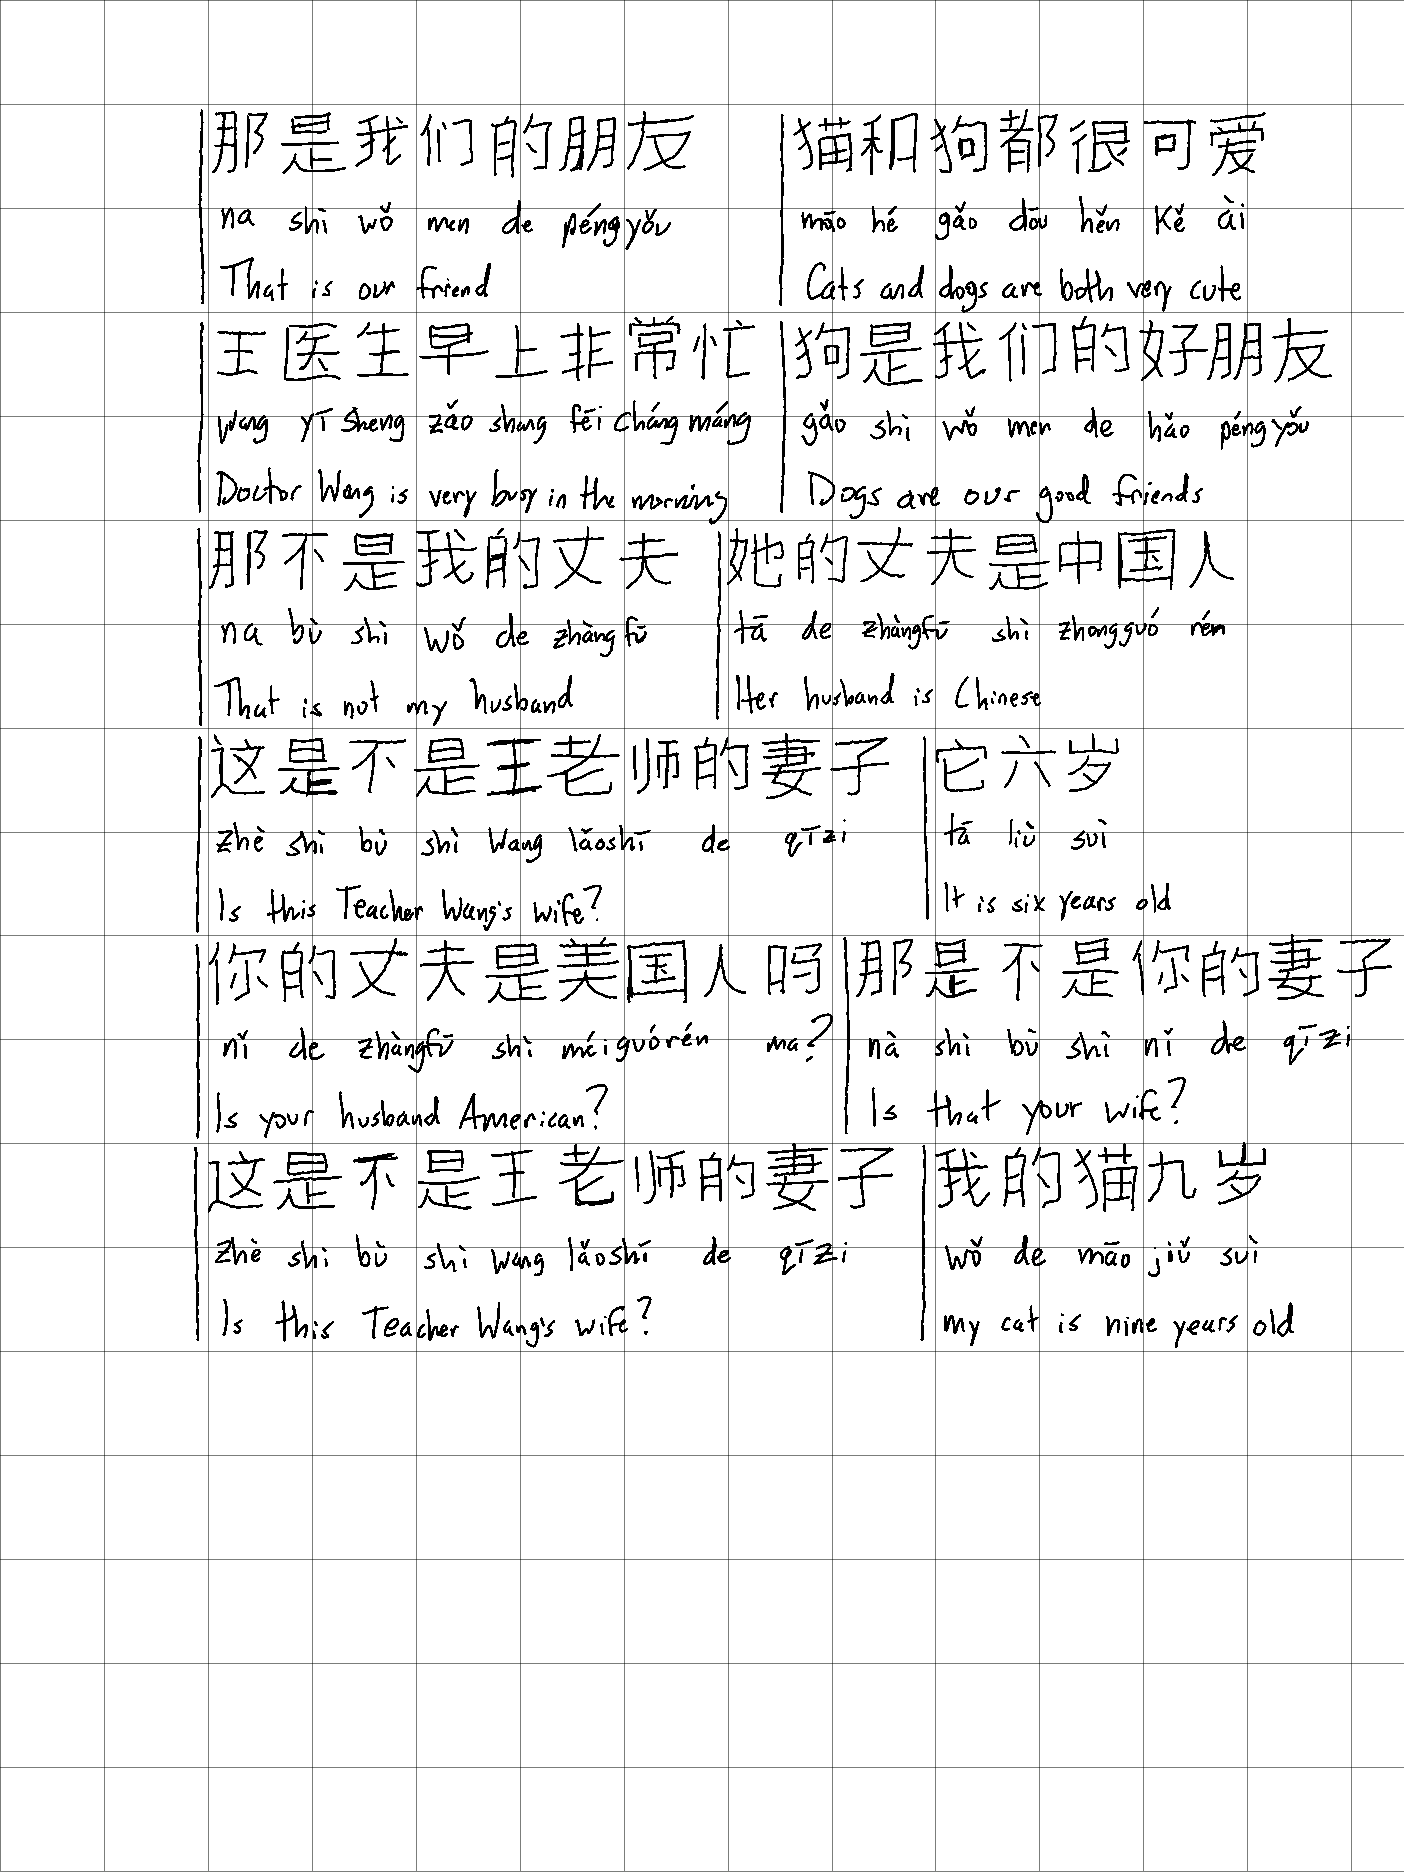 那是我们的朋友
na shì wǒ men de péngyǒu
That is our friend
猫和狗都很可爱
māo hé gǎo dōu hěn kě ài
Cats and dogs are both very cute
王医生早上非常忙
Wang yī sheng zǎo shang fēi cháng máng
Doctor Wang is very busy in the morning
狗是我们的好朋友
gǎo shì wǒ men de hǎo péngyǒu
Dogs are our good friends
那不是我的丈夫
na bù shì wǒ de zhàngfū
That is not my husband
她的丈夫是中国人
tā de zhàngfū shì zhongguó rén
Her husband is Chinese
这是不是王老师的妻子
zhè shì bù shì Wang lǎoshī de qīzi
Is this Teacher Wang's wife?
它六岁
tā liù suì
It is six years old
你的丈夫是美国人吗
nǐ de zhàngfū shì méiguórén ma?
Is your husband American?
那是不是你的妻子
nà shì bù shì nǐ de qīzi
Is that your wife?
这是不是王老师的妻子
zhè shì bù shì wang lǎoshī de qīzi
Is this Teacher Wang's wife?
我的猫九岁
wǒ de māo jiǔ suì
my cat is nine years old